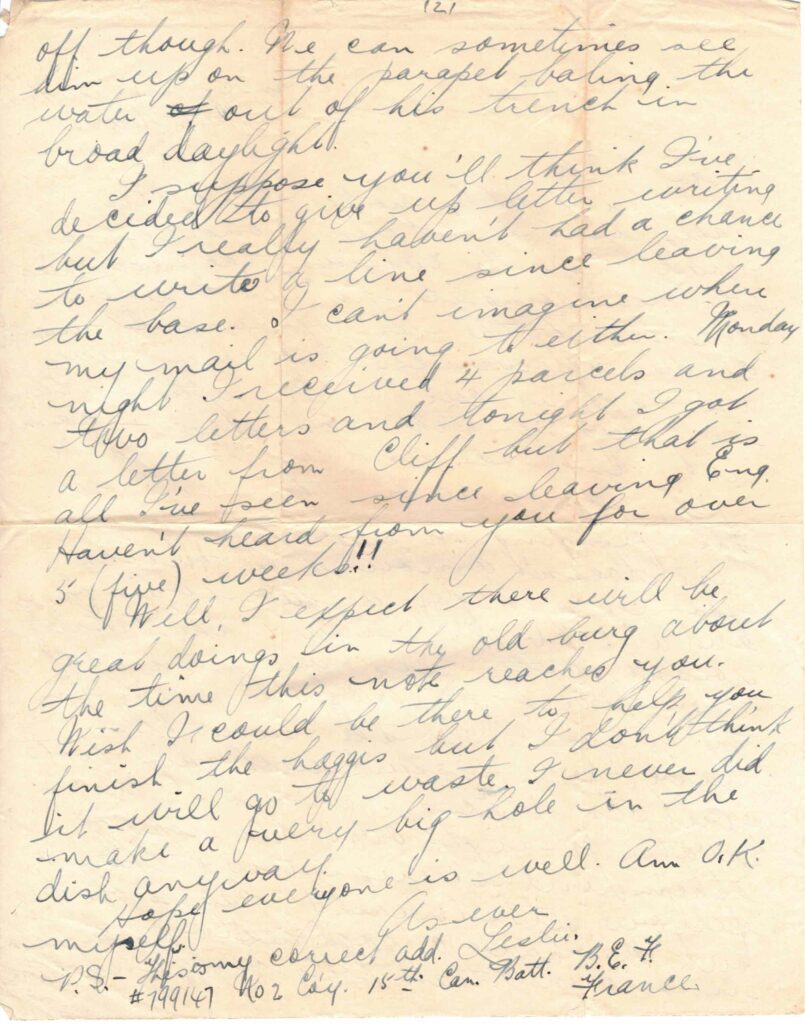 (2)
off though. We can sometimes see
him up on the parapet baling the
water of out of his trench in
broad daylight.
I suppose you'll think I've
decided to give up letter writing
but I really haven't had a chance
to write a line since leaving
the base. I can't imagine where
my mail is going to either. Monday
night I received 4 parcels and
two letters and tonight I got
a letter from Cliff but that is
all I've seen since leaving Eng.
Haven't heard from you for over
5 (five) weeks!!
Well, I expect there will be
great doings in the old burg about
the time this note reaches you.
Wish I could be there to help you
finish the haggis but I don't think
it will go to waste. I never did
make a very big hole in the
dish anyway.
Hope everyone is well. Am O.K.
myself.
As ever
Leslie.
P.S. - This is my correct add.
#799147 No 2 Co'y. 15th Can. Batt. B.E.F.
France.